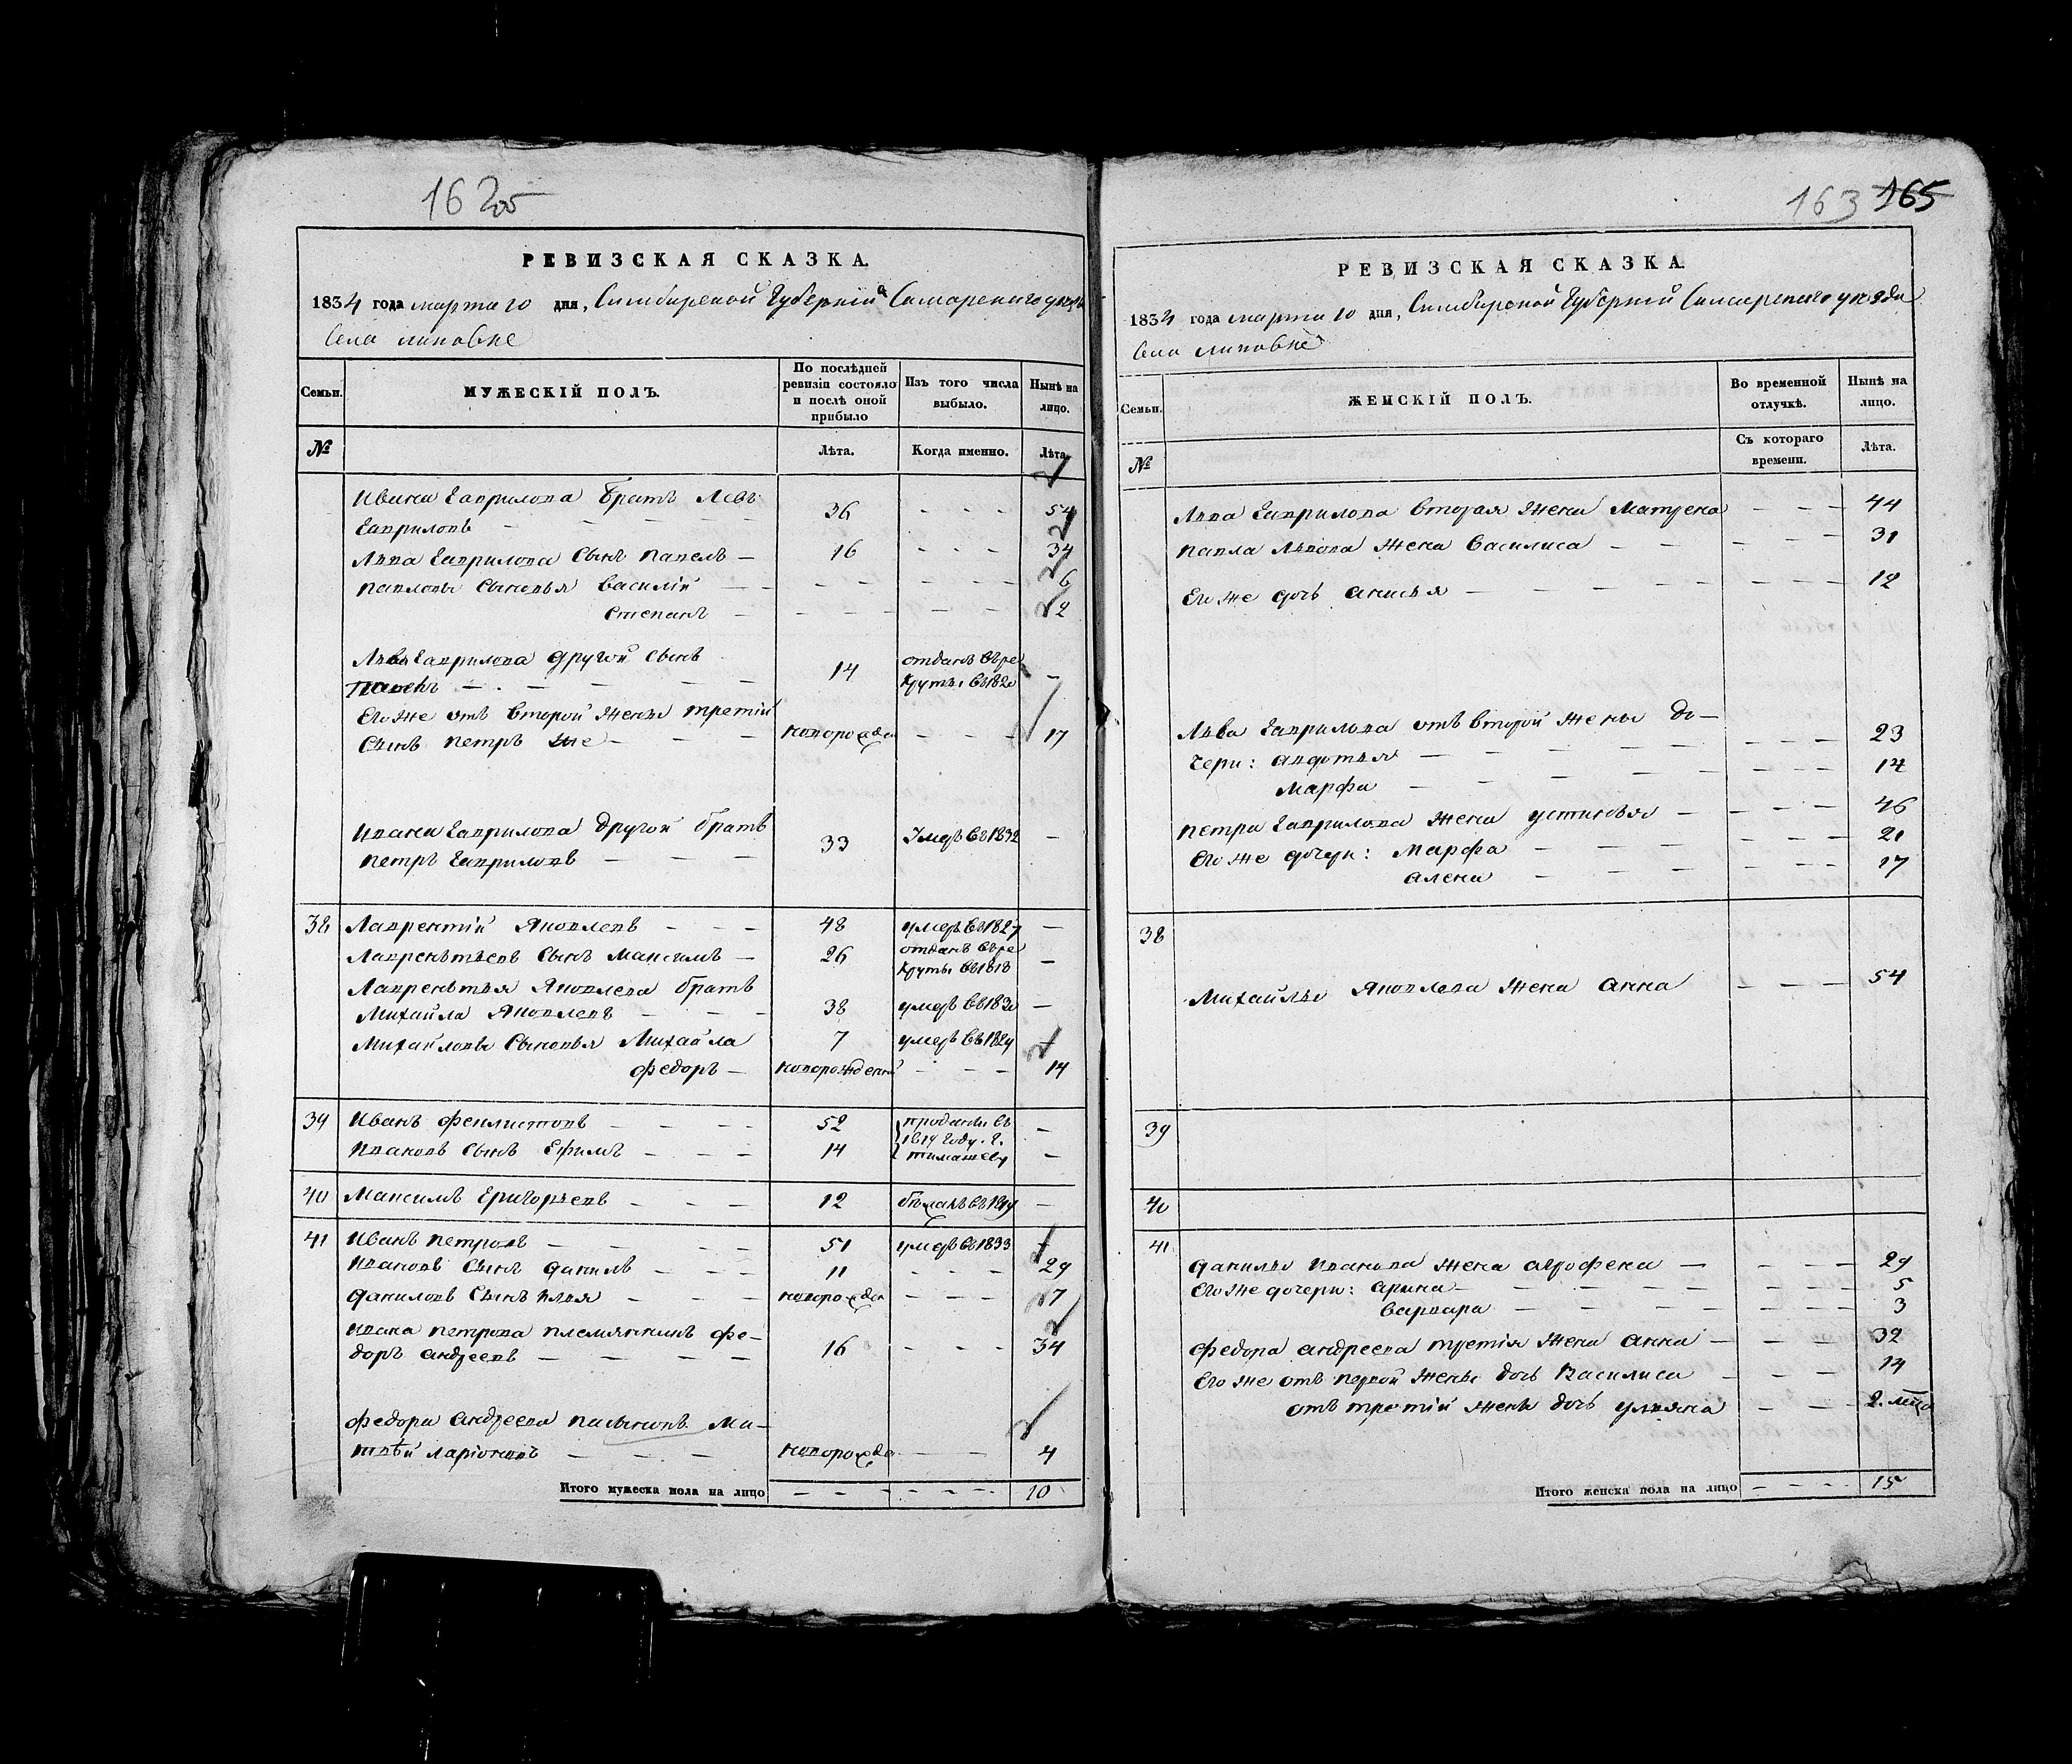 162
РЕВИЗСКАЯ СКАЗКА.
1834 года марта 10 дня, Симбирской Губернiи Самарского уезда
Села Липовке
Семьи. МУЖЕСКIЙ ПОЛЪ. По послѣдней ревизiи состояло и послѣ оной прибыло Изъ того числа выбыло. Нынѣ на лицо.
№ Лѣта. Когда именно. Лѣта.
Ивана Гаврилова Братъ Левъ
Гавриловъ — — — — 36 - - - 54
Льва Гаврилова Сынъ павелъ — 16 - - - 34
павловы Сыновья Василiй — — - - - 6
Степанъ — - - - 2
Льва Гаврилова другой Сынъ 14 отданъ въ ре
— — — — круты въ 1820 —
Его же отъ второй жены третiй
Сынъ петръ — — новорожден - - - 17
Ивана Гаврилова другой братъ 33 Умеръ въ 1832 —
петръ Гавриловъ — — —
38 Лаврентiй Яковлевъ — — — 48 умеръ въ 1827 —
Лаврентьевъ Сынъ Максимъ — 26 отданъ въ ре
круты въ 1818 —
Лаврентья Яковлева братъ
Михайла Яковлевъ — — — 38 умеръ въ 1830 —
Михайловы Сыновья Михайла 7 умеръ въ 1829 —
Федоръ — новорожденный - - - 14
39 Иванъ Феклистовъ — — — 52 проданы въ —
Ивановъ Сынъ Ефимъ — — — 14 1819 году. Г. тимашеву —
40 Максимъ Григорьевъ — — — 12 въ 1819 —
41 Иванъ петровъ — — — 51 умеръ въ 1833 —
Ивановъ Сынъ данилъ — — — 11 - - - 29
даниловъ Сынъ илья — — — новорожден - - - 7
Ивана петрова племянникъ Фе—
доръ андреевъ — — — — 16 - - - 34
Федора андреева пасынокъ Ма—
твѣй ларiоновъ — — — новорожден - - 4
Итого мужеска пола на лицо - - - - - - 10
163 165
РЕВИЗСКАЯ СКАЗКА.
1834 года марта 10 дня, Симбирской Губернiи Самарскаго уезда
Села Липовке
Семьи. ЖЕНСКIЙ ПОЛЪ. Во временной отлучкѣ. Нынѣ на лицо.
№ Съ котораго времени. Лѣта.
Льва Гаврилова вторая жена Матрена - - - 44
павла львова жена Василиса — — - - - 31
Его же дочь анисья — — — - - - 12
Льва Гаврилова отъ второй жены до—
чери: авдотья — — — — - - - 23
Марфа — — — — - - - 14
петра Гаврилова жена устинья — - - - 46
Его же дочери: Марфа — — — - - - 21
алена — — — - - - 17
38
Михайлы Яковлева жена анна - - - 54
39
40
41 данилы Иванова жена агрофена — - - - 29
Его же дочери: арина — — — - - - 5
варвара — — — - - - 3
Федора андреева третiя жена анна — - - - 32
Его же отъ первой жены дочь Василиса — - - - 14
отъ третiй жены дочь ульяна - - - 2.
Итого женска пола на лицо - - - - 15